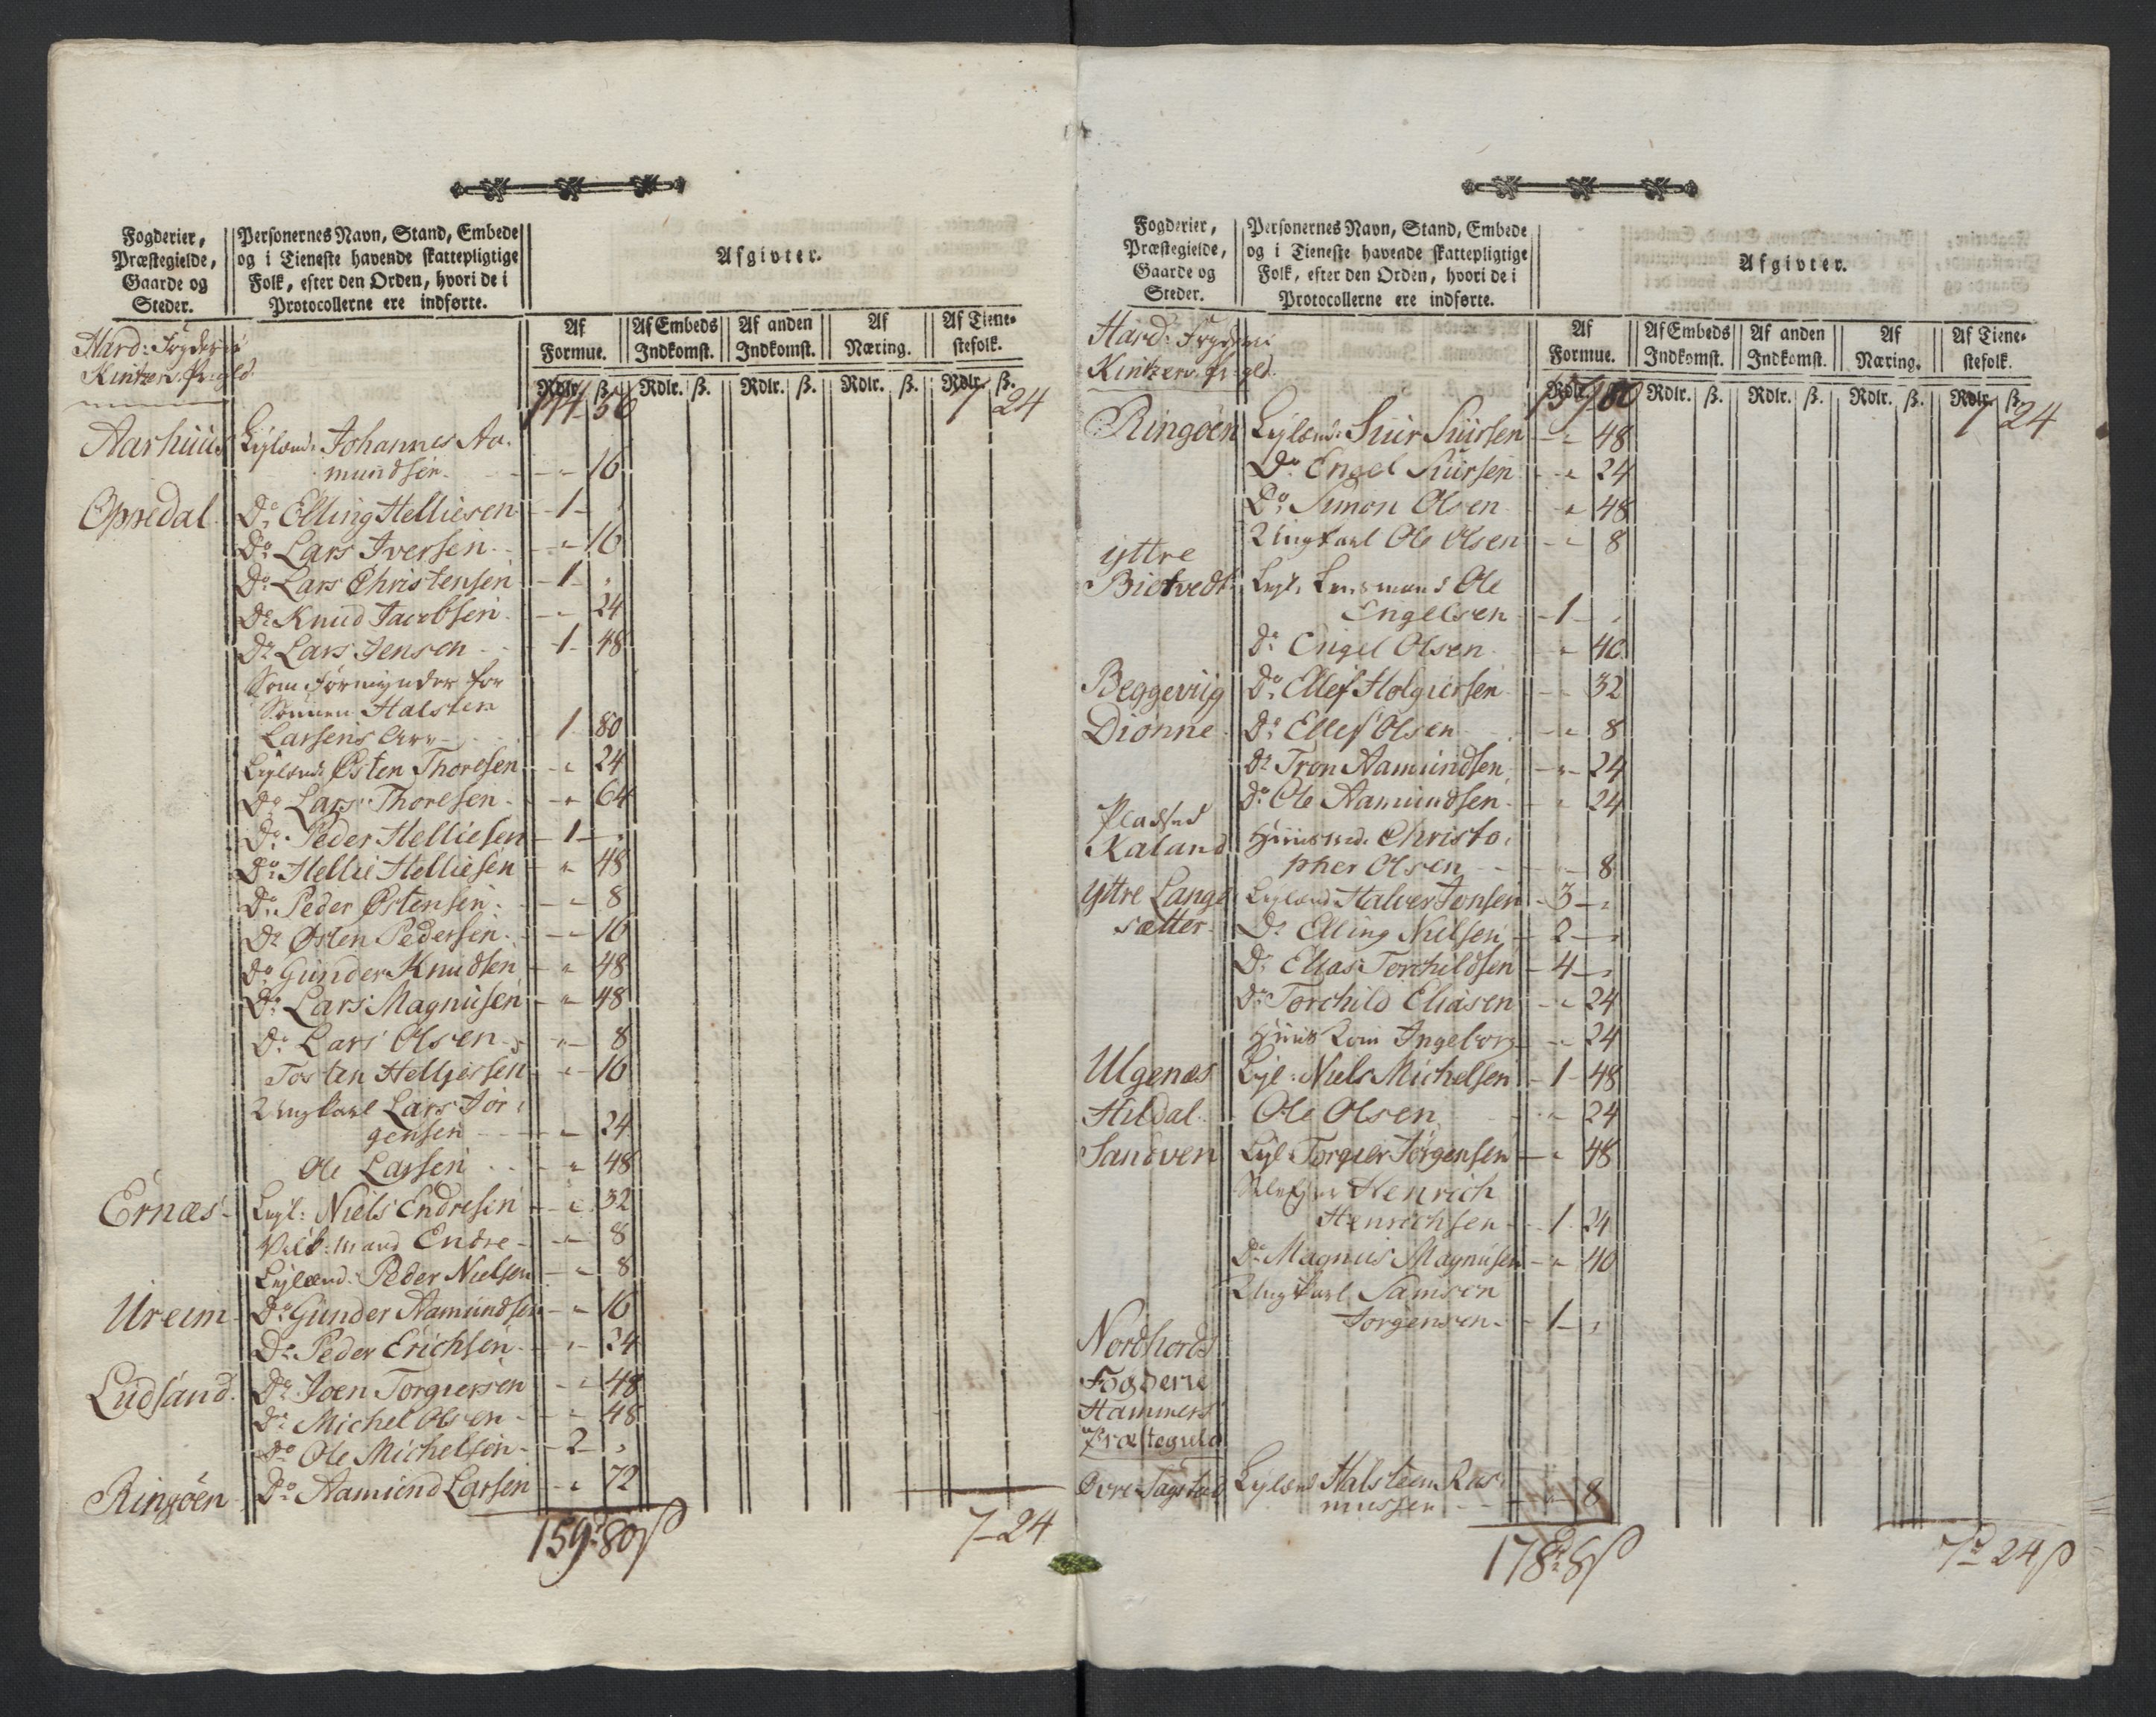 Fogderier, Præstegielde, Gaarde og Steder.
Personernes Navn, Stand, Embede og i Tieneste havende skattepligtige Folk, efter den Orden, hvori de i Protocollerne ere indførte.
Afgivter.
Af Formue. Af Embeds Indkomst. Af anden Indkomst. Af Næring. Af Tiene- stefolk.
Rdlr. ß. Rdlr. ß. Rdlr. ß. Rdlr. ß. Rdlr. ß.
Hard: Fogderie
Kintzer. Pr: gld.
144 56 7 24
Aarhuus Leylænd: Johannes Aa-
mundsen - " 16
Opredal Do Elling Helliesen 1 "
Do Lars Iversen " 16
Do Lars Christensen 1 "
Do Knud Jacobsen " 24
Do Lars Jensen 1 48
Som Formynder for
Sønnen Halsten
Larsens Arv 1 80
Leylænd: Østen Thoresen " 24
Do Lars Thoresen " 64
Do Peder Helliesen 1 "
Do Hellie Helliesen " 48
Do Peder Østensen " 8
Do Østen Pedersen " 16
Do Gunder Knudsen " 48
Do Lars Magnusen " 48
Do Lars Olsen " 8
Tosten Helljessen " 16
Ungkarl Lars Jør-
gensen " 24
Ole Larsen " 48
Ernæs Leyl: Niels Endresen " 32
mand Endre " 8
Leylænd: Peder Nielsen " 8
Ureim Do Gunder Aamundsen " 16
Do Peder Erichsen " 24
Ludsand Do Joen Torgiersen " 48
Do Michel Olsen " 48
Do Ole Michelsen 2 "
Ringøen Do Aamund Larsen " 72
159 80 ß 7 24
Fogderier, Præstegielde, Gaarde og Steder.
Personernes Navn, Stand, Embede og i Tieneste havende skattepligtige Folk, efter den Orden, hvori de i Protocollerne ere indførte.
Afgivter.
Af Formue. Af Embeds Indkomst. Af anden Indkomst. Af Næring. Af Tiene- stefolk.
Rdlr. ß. Rdlr. ß. Rdlr. ß. Rdlr. ß. Rdlr. ß.
Hard: Fogderie
Kintzer. Pr: gld.
159 80 7 24
Ringøen Leylænd: Siur Siursen " 48
Do Engel Siursen " 24
Do Simon Olsen " 48
Ungkarl Ole Olsen " 8
ÿttre
Biotvedt Leyl: Lensmand Ole
Engelsen 1 "
Do Engel Olsen " 40
Beggeviig Do Ellef Holgiersen " 32
Dionne Do Ellef Olsen " 8
Do Tron Aamundsen " 24
Do Ole Aamundsen " 24
Pladsed
Kaland Huusmd: Christo-
pher Olsen " 8
ÿttre Lange Leylænd Halver Jonsen 3 "
sætter Do Elling Nielsen 2 "
Do Elias Torchildsen 4 "
Do Torchild Eliasen " 24
Huus Kone Ingeborg " 24
Ulgenæs Leyl: Niels Michelsen 1 48
Hildal Ole Olsen " 24
Sandven Leyl Torgier Jørgensen " 48
Henrich
Henrichsen 1 24
Do Magnus Magnusen " 40
Ungkarl Samson
Jørgensen 1 "
Nordhords
Fogderie
Hammers
Præstegield
Øvre Tagstad Leylænd Halsteen Ras-
mussen " 8
178 8 ß 7 24 ß